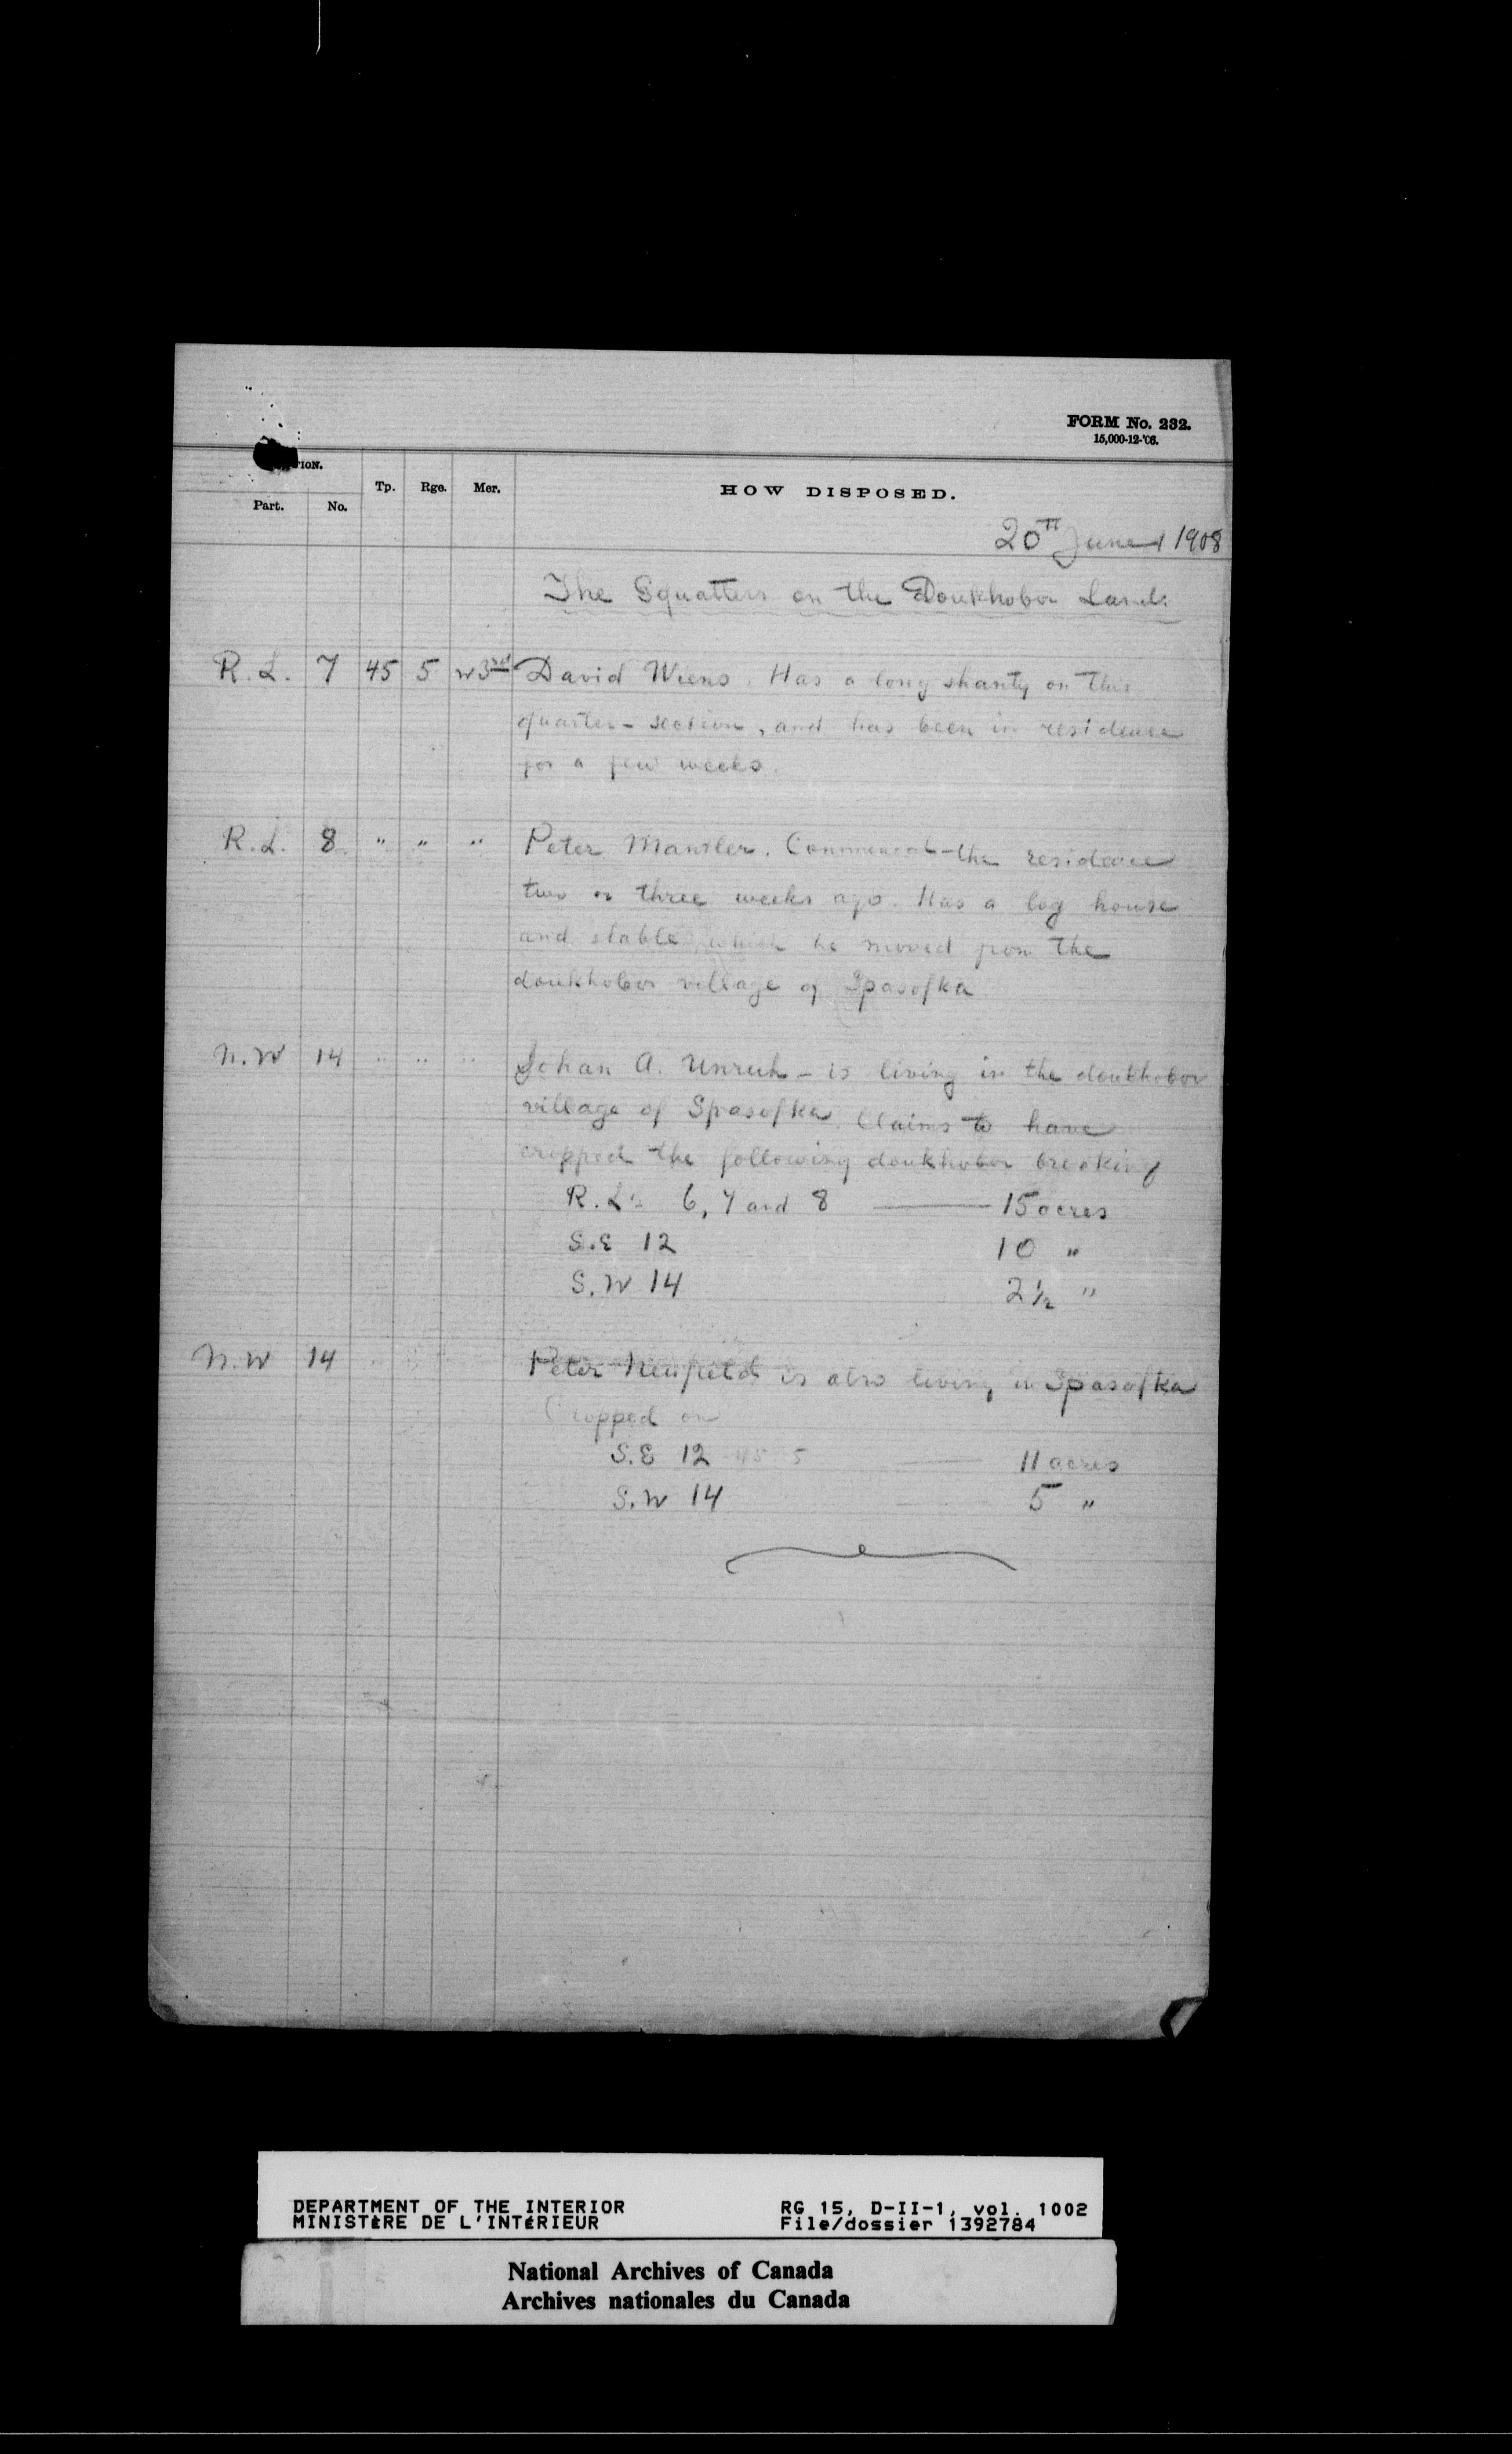 FORM No. 232.
15,000-12-'06.
TION.
Part. No. Tp. Rge. Mer. HOW DISPOSED.
20th June 1908
The Squatters on the Doukhobor Lands
R. L. 7 45 5 W3rd David Wiens. Has a long shanty on this
quarter-section, and has been in residence
for a few weeks.
R. L. 8 " " " Peter Mantler. Commenced the residence
two or three weeks ago. Has a log house
and stable which he moved from the
doukhobor village of Spasofka
N.W 14 " " " Johan A. Unruh - is living in the doukhobor
village of Spasofka. Claims to have
cropped the following doukhobor breaking
R. L's 6, 7 and 8 — 15 acres
S.E 12 10 "
S.W 14 2½ "
N.W 14 Peter Neufield is also living in Spasofka
Cropped on
S.E 12 45 5 — 11 acres
S.W 14 — 5 "
DEPARTMENT OF THE INTERIOR RG 15, D-II-1, vol. 1002
MINISTÈRE DE L'INTÉRIEUR File/dossier 1392784
National Archives of Canada
Archives nationales du Canada